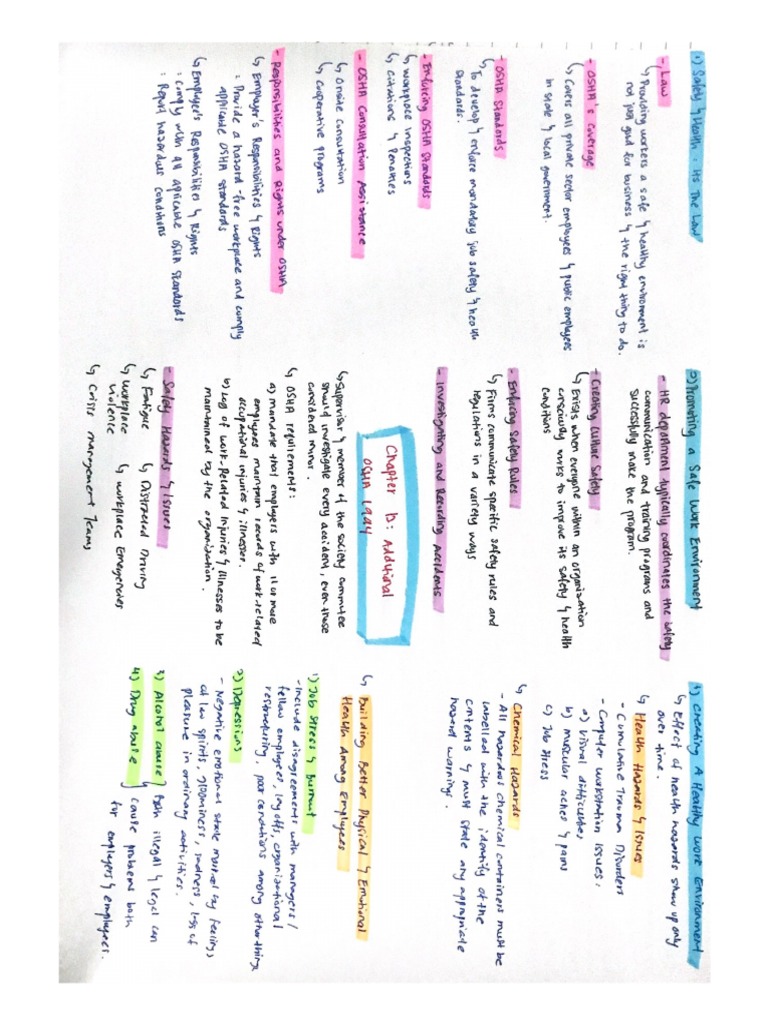 1) Safety & Health : Its The Law
- Law
↳ Providing workers a safe & healthy environment is
not just good for business & the right thing to do.
- OSHA's Coverage
↳ Covers all private sector employees & public employees
in state & local government.
- OSHA Standards
↳ To develop & enforce mandatory job safety & health
standards.
- Enforcing OSHA Standards
↳ Workplace inspections
↳ Citations & Penalties
- OSHA Consultation Assistance
↳ Onsite consultation
↳ Cooperative programs
- Responsibilities and Rights under OSHA
↳ Employer's Responsibilities & Rights
: Provide a hazard-free workplace and comply
applicable OSHA standards
↳ Employee's Responsibilities & Rights
: Comply with all applicable OSHA standards
: Report hazardous conditions
2) Promoting a Safe Work Environment
- HR department typically coordinates the safety
communication and training programs and
successfully make the program.
- Creating Culture Safety
↳ Exists when everyone within an organization
consciously works to improve its safety & health
conditions
- Enforcing Safety Rules
↳ Firms communicate specific safety rules and
regulations in a variety ways
- Investigating and Recording Accidents
↳ Supervisor & member of the society committee
should investigate every accident, even those
considered minor.
↳ OSHA requirements:
a) mandate that employers with 11 or more
employees maintain records of work-related
occupational injuries & illnesses.
b) Log of work-Related Injuries & Illnesses to be
maintained by the organization.
- Safety Hazards & Issues
↳ Fatigue ↳ Distracted Driving
↳ Workplace ↳ Workplace Emergencies
violence
↳ Crisis management Teams
Chapter 13: Additional
OSHA Law
3) Creating A Healthy Work Environment
↳ Effect of health hazards show up only
over time.
↳ Health Hazards & Issues
- Cumulative Trauma Disorders
- Computer workstation issues,
a) visual difficulties
b) muscular aches & pains
c) Job stress
↳ Chemical Hazards
- All hazardous chemical containers must be
labelled with the identity of the
contents & must state any appropriate
hazard warnings.
↳ Building Better Physical & Emotional
Health Among Employees
1) Job Stress & Burnout
- Include disagreements with managers /
fellow employees, layoffs, organizational
restructuring, poor conditions among other things
2) Depressions
- Negative emotional state marked by feelings
of low spirits, gloominess, sadness, loss of
pleasure in ordinary activities.
3) Alcohol abuse } Both illegal & legal can
4) Drug abuse } cause problems both
for employers & employees.